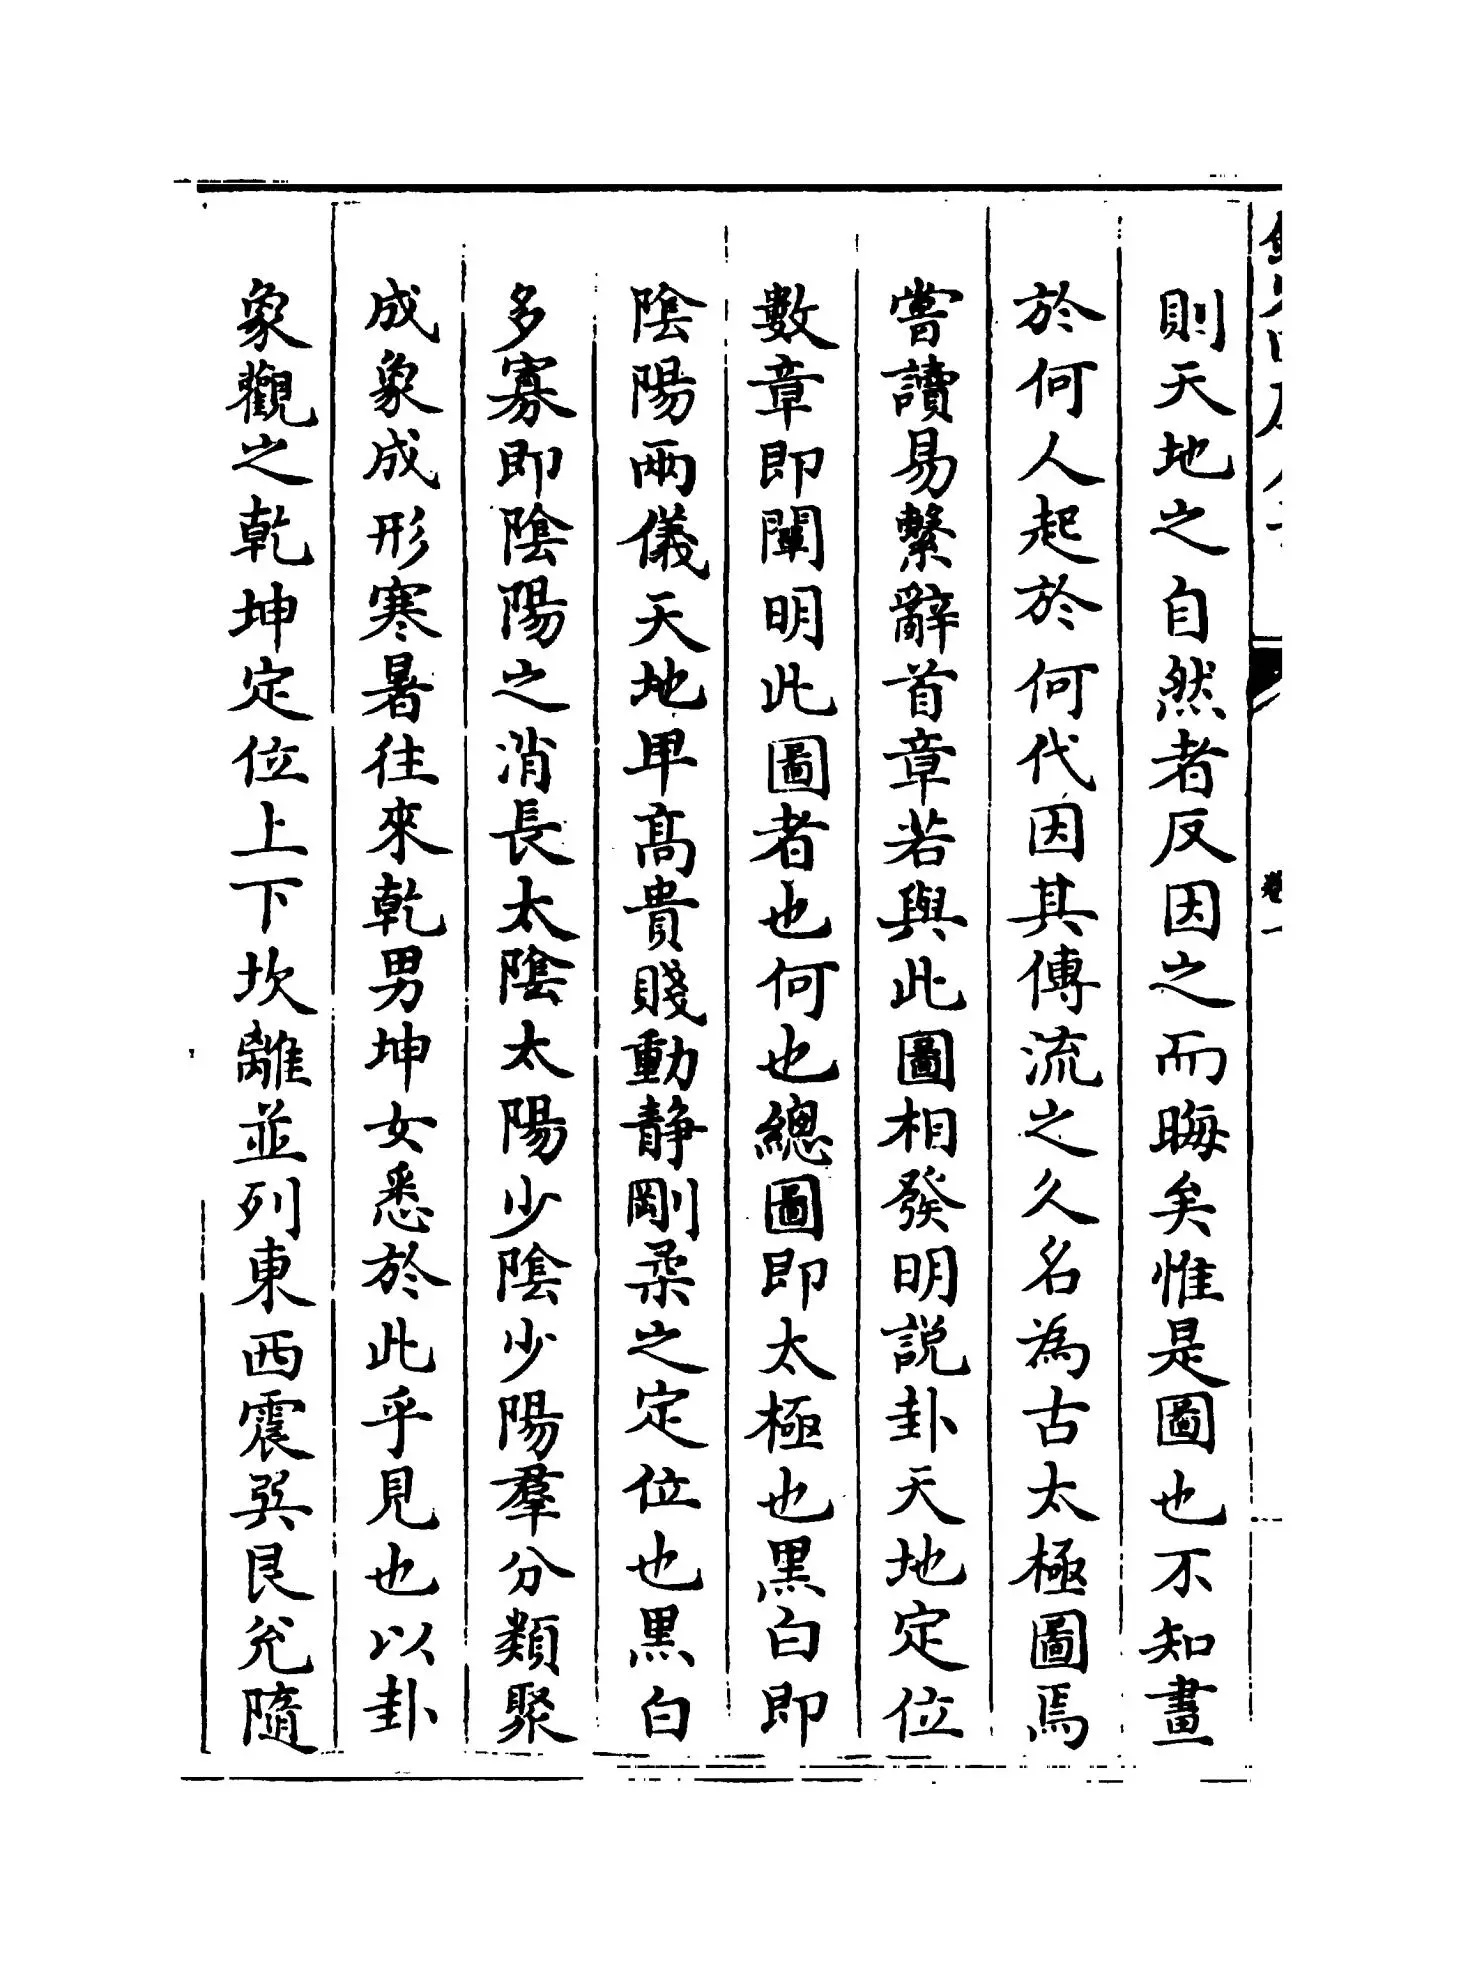 則天地之自然者反因之而晦矣惟是圖也不知畫
於何人起於何代因其傳流之久名為古太極圖焉
嘗讀易繫辭首章若與此圖相發明説卦天地定位
數章即闡明此圖者也何也總圖即太極也黒白即
陰陽兩儀天地卑髙貴賤動静剛柔之定位也黒白
多寡即陰陽之消長太陰太陽少陰少陽羣分類聚
成象成形寒暑往來乾男坤女悉於此乎見也以卦
象觀之乾坤定位上下坎離並列東西震巽艮兊隨